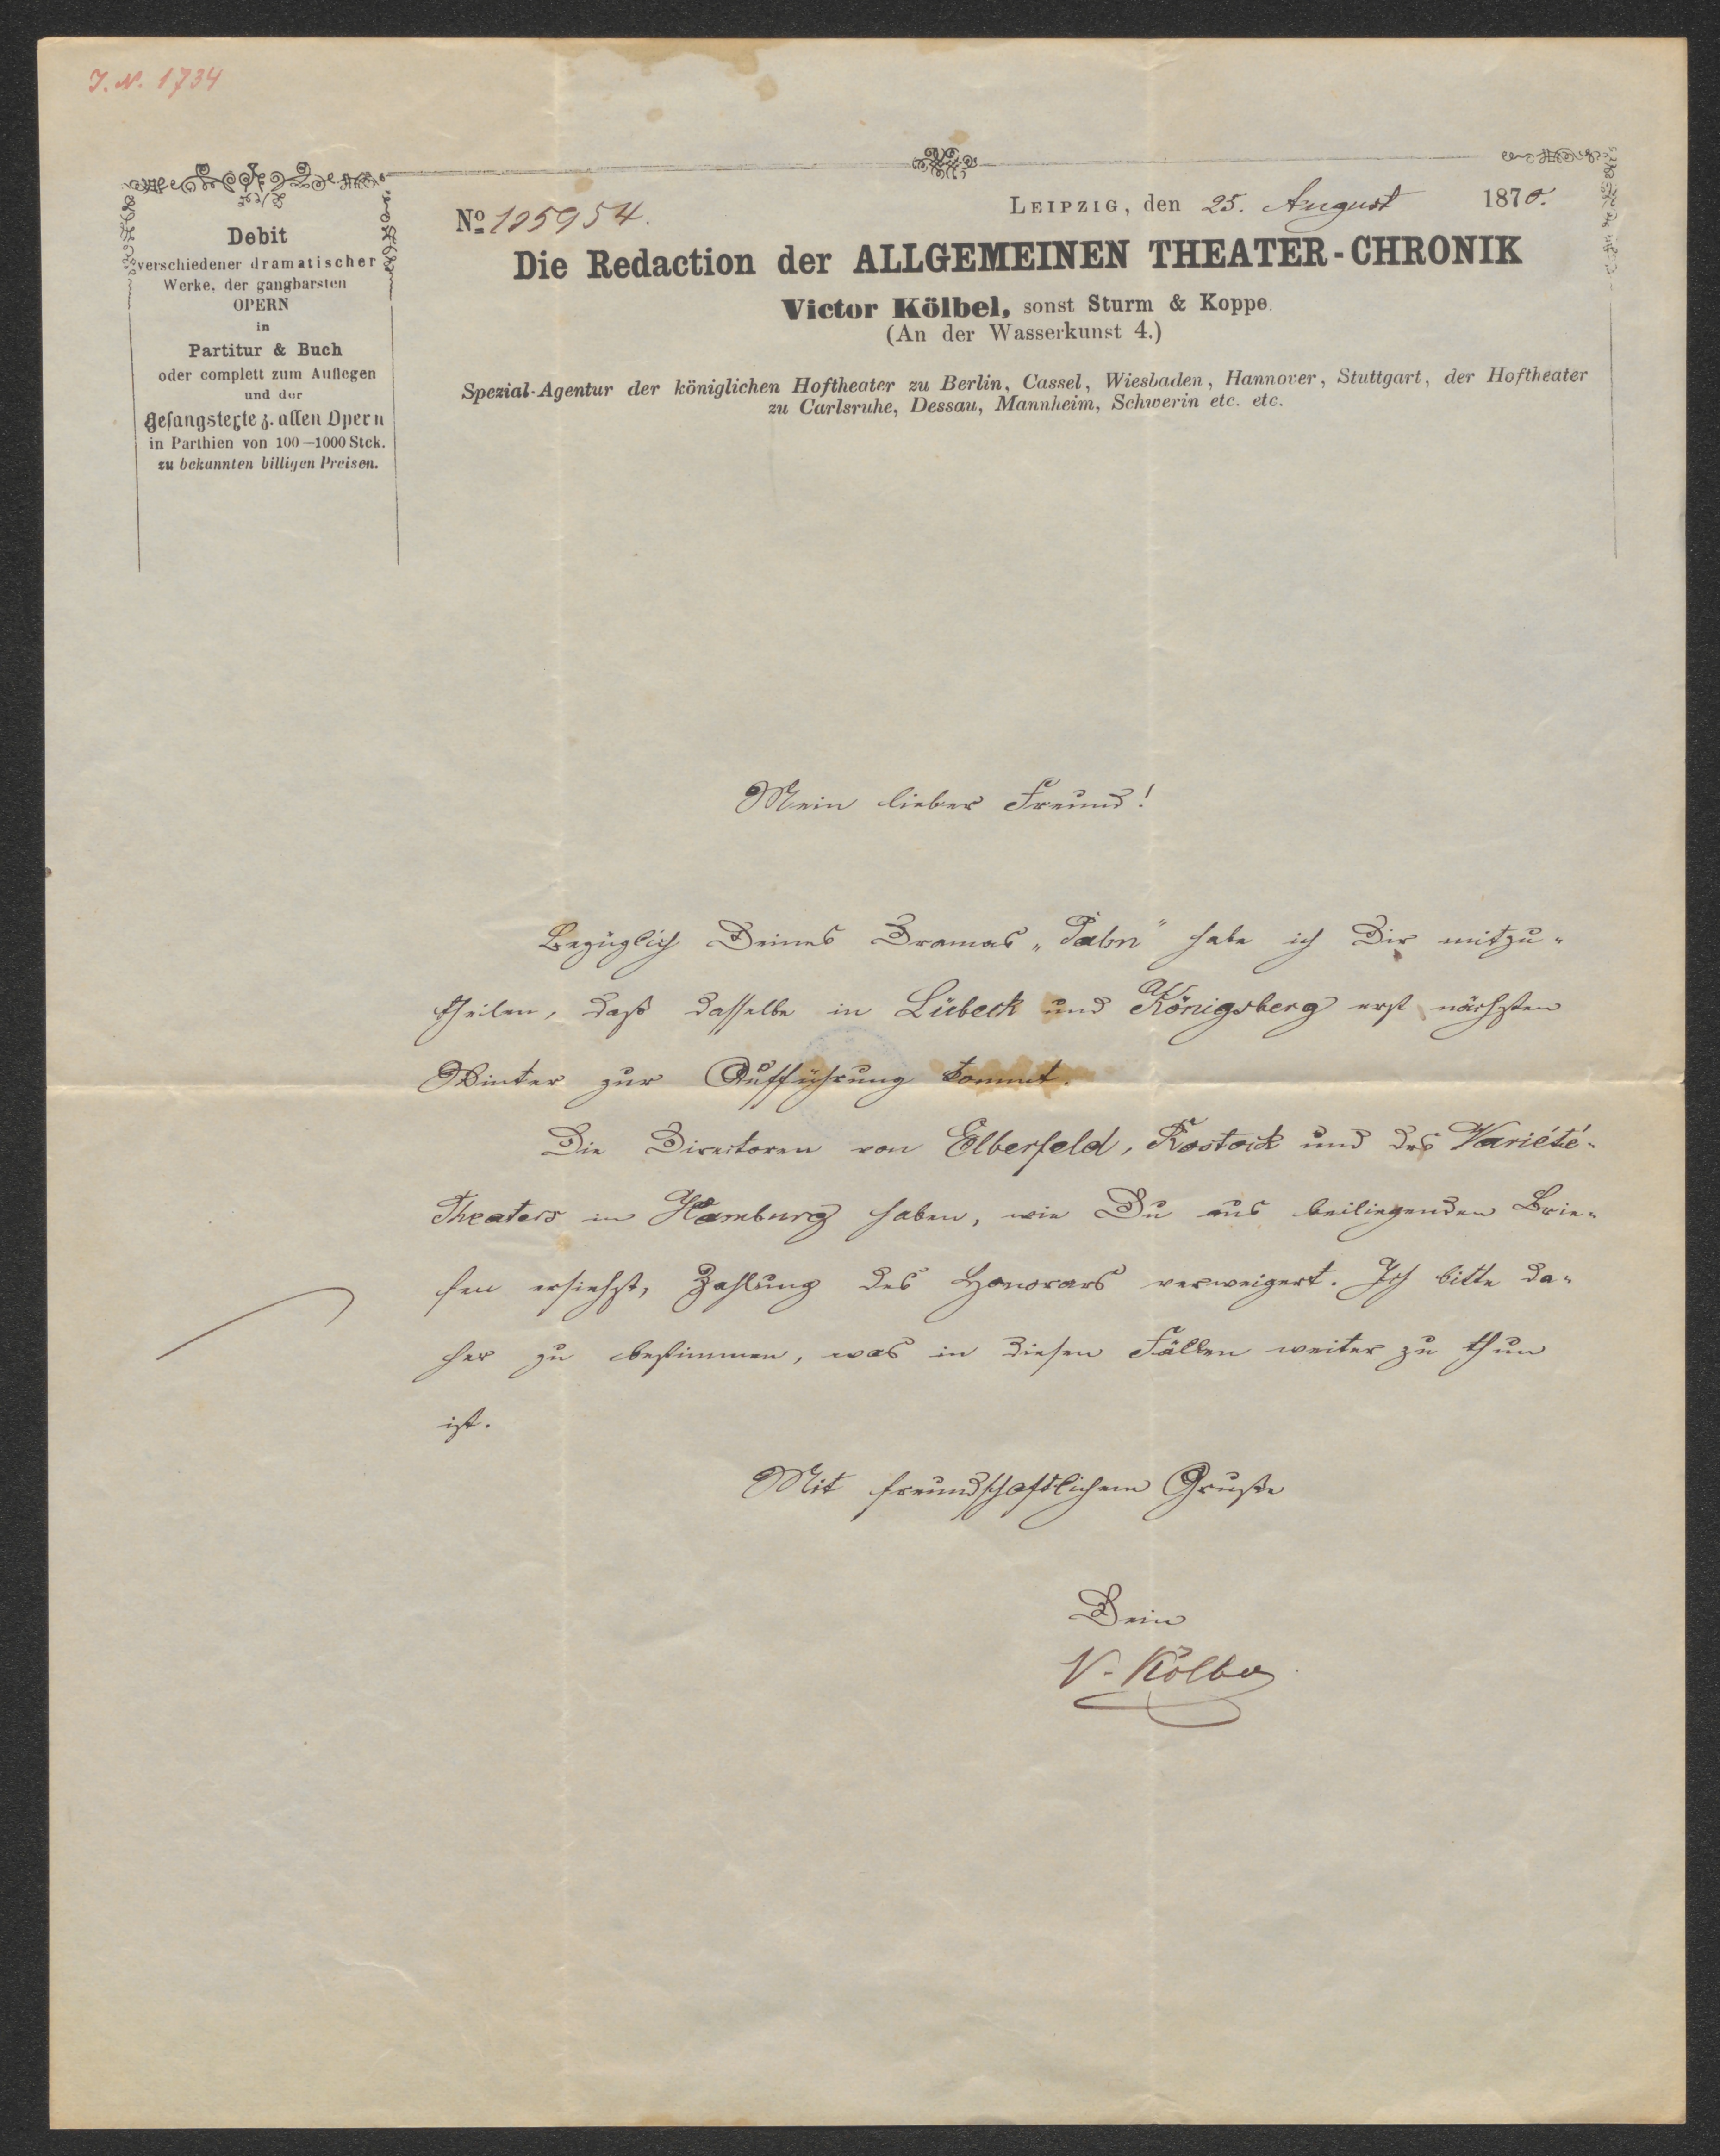 J. N. 1734
Debit
verschiedener dramatischer
Werke, der gangbarsten
OPERN
in
Partitur & Buch
oder complett zum Auflegen
und der
Gesangstexte z. allen Opern
in Parthien von 100—1000 Stck.
zu bekannten billigen Preisen.
No 105954.
LEIPZIG, den 25. August 1870.
Die Redaction der ALLGEMEINEN THEATER-CHRONIK
Victor Kölbel, sonst Sturm & Koppe.
(An der Wasserkunst 4.)
Spezial-Agentur der königlichen Hoftheater zu Berlin, Cassel, Wiesbaden, Hannover, Stuttgart, der Hoftheater
zu Carlsruhe, Dessau, Mannheim, Schwerin etc. etc.
Mein lieber Freund!
Bezüglich Deines Dramas „Palm" habe ich Dir mitzu-
theilen, daß dasselbe in Lübeck und Königsberg erst nächsten
Winter zur Aufführung kommt.
Die Directoren von Elberfeld, Rostock und des Variété-
Theaters in Hamburg haben, wie Du aus beiliegenden Brie-
fen ersiehst, Zahlung des Honorars verweigert. Ich bitte da-
her zu bestimmen, was in diesen Fällen weiter zu thun
ist.
Mit freundschaftlichem Gruße
Dein
V. Kölbel